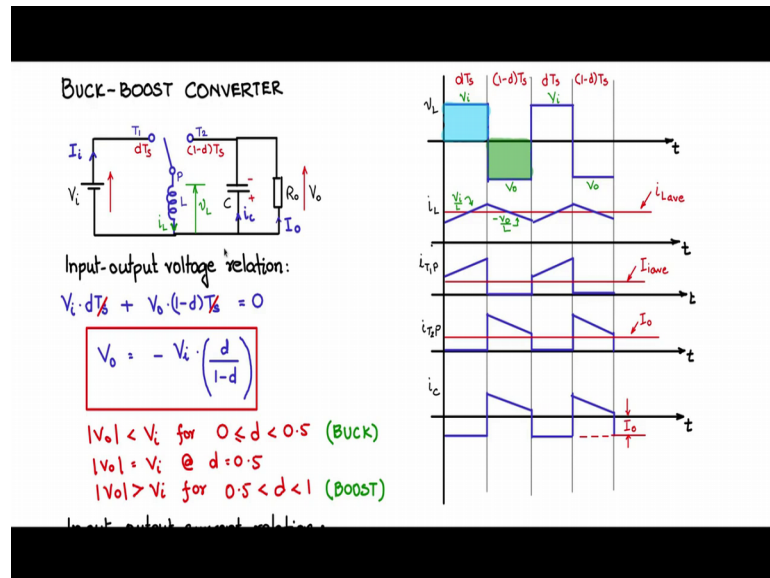 BUCK-BOOST CONVERTER
T1 T2
dTs (1-d)Ts
Ii
Vi
P
L
iL
vL
C
- +
ic
Ro
Vo
Io
Input-output voltage relation:
Vi·dTs + Vo·(1-d)Ts = 0
Vo = - Vi·(d/1-d)
|Vo| < Vi for 0 ≤ d < 0.5 (BUCK)
|Vo| = Vi @ d=0.5
|Vo| > Vi for 0.5 < d < 1 (BOOST)
Input-output current relation:
dTs (1-d)Ts dTs (1-d)Ts
vL Vi Vi
t
Vo Vo
iL Vi/L -Vo/L iLave
t
iT1P Iiave
t
iT2P Io
t
ic
t
Io